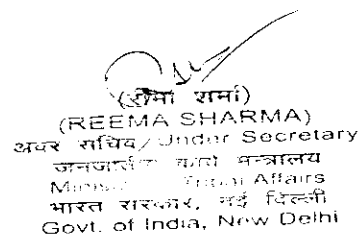 (रीमा शर्मा)
(REEMA SHARMA)
अवर सचिव/Under Secretary
मन्त्रालय
Tribal Affairs
भारत सरकार, नई दिल्ली
Govt. of India, New Delhi